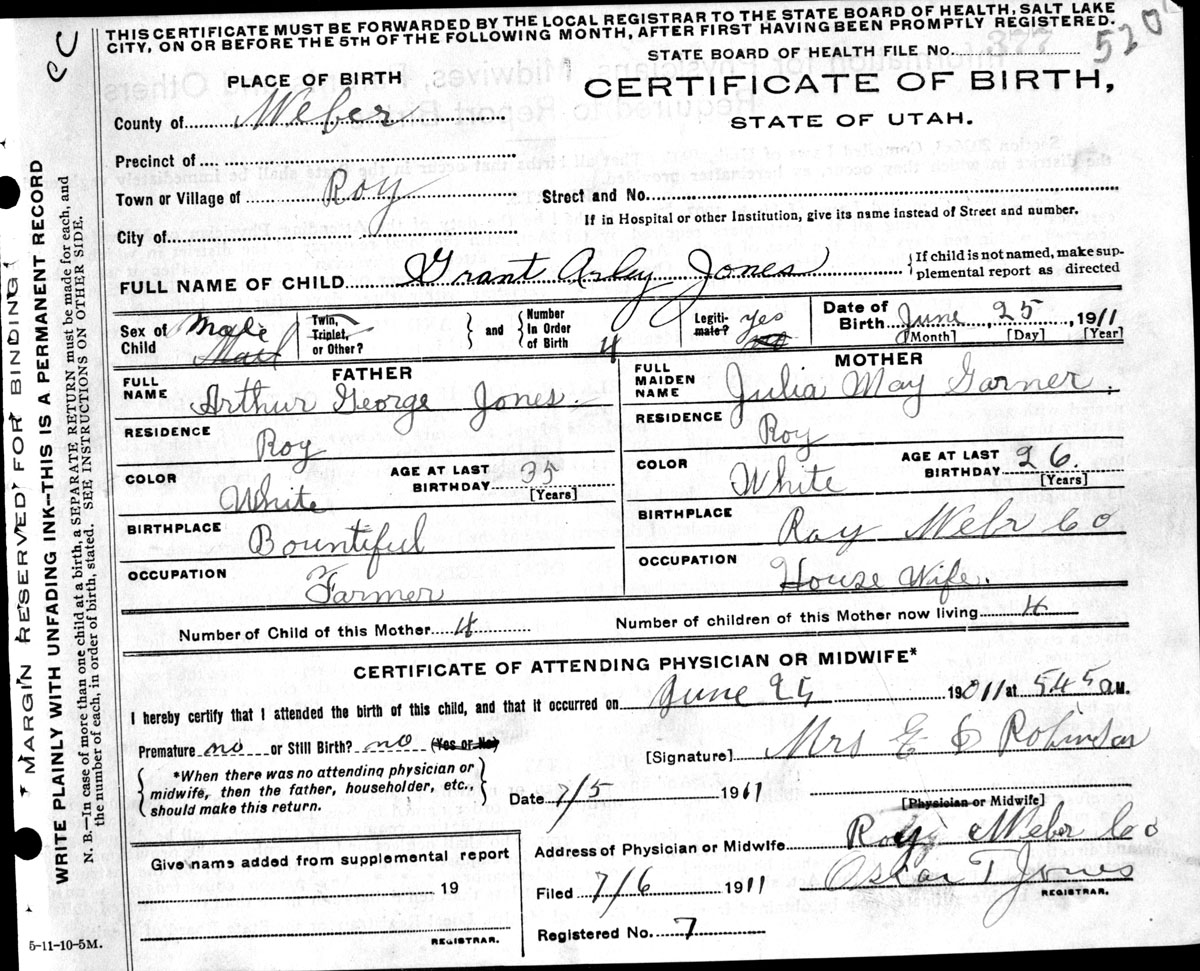 THIS CERTIFICATE MUST BE FORWARDED BY THE LOCAL REGISTRAR TO THE STATE BOARD OF HEALTH, SALT LAKE
CITY, ON OR BEFORE THE 5TH OF THE FOLLOWING MONTH, AFTER FIRST HAVING BEEN PROMPTLY REGISTERED.
STATE BOARD OF HEALTH FILE NO. 377 520
PLACE OF BIRTH
CERTIFICATE OF BIRTH,
STATE OF UTAH.
County of Weber
Precinct of
Town or Village of Roy Street and No.
If in Hospital or other Institution, give its name instead of Street and number.
City of
FULL NAME OF CHILD Grant Arley Jones { If child is not named, make sup-
plemental report as directed
Sex of Child Male
Twin, Triplet, or Other?
and Number in Order of Birth 4
Legiti-mate? yes no
Date of Birth June 25, 1911
[Month] [Day] [Year]
FATHER
FULL NAME Arthur George Jones.
RESIDENCE Roy
COLOR White AGE AT LAST BIRTHDAY 35 [Years]
BIRTHPLACE Bountiful
OCCUPATION Farmer
MOTHER
FULL MAIDEN NAME Julia May Garner.
RESIDENCE Roy
COLOR White AGE AT LAST BIRTHDAY 26. [Years]
BIRTHPLACE Roy Weber Co
OCCUPATION House Wife.
Number of Child of this Mother 4 Number of children of this Mother now living 4
CERTIFICATE OF ATTENDING PHYSICIAN OR MIDWIFE*
I hereby certify that I attended the birth of this child, and that it occurred on June 25 1911 at 545 A M.
Premature no or Still Birth? no (Yes or No)
[Signature] Mrs E Robinson
*When there was no attending physician or
midwife, then the father, householder, etc.,
should make this return.
Date 7/5 1911
[Physician or Midwife]
Address of Physician or Midwife Roy Weber Co
Filed 7/6 1911 Oscar T Jones
REGISTRAR.
Registered No. 7
Give name added from supplemental report
19
REGISTRAR.
5-11-10-5M.
MARGIN RESERVED FOR BINDING
WRITE PLAINLY WITH UNFADING INK—THIS IS A PERMANENT RECORD
N. B.—In case of more than one child at a birth, a SEPARATE RETURN must be made for each, and
the number of each, in order of birth, stated. SEE INSTRUCTIONS ON OTHER SIDE.